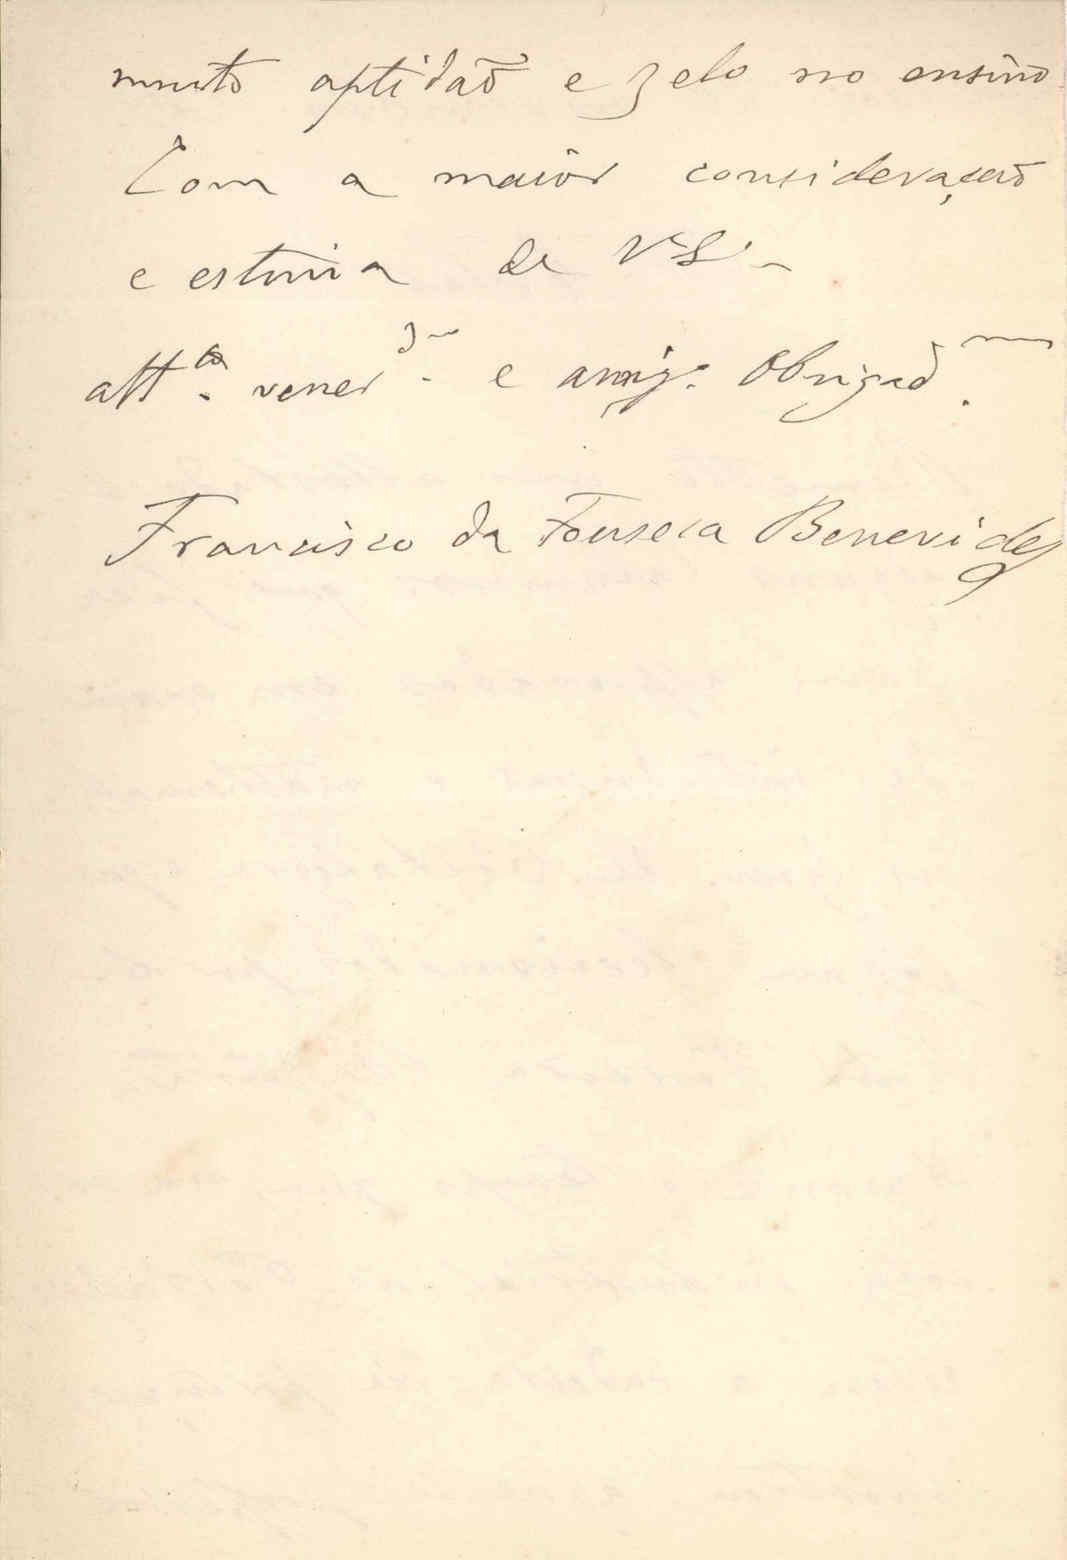 muito aptidaõ e zelo no ensino
Com a maior consideraçaõ
e estima de V. S.
att.º vener.ºr e amig.º Obrigad.mo
Francisco da Fonseca Benevides